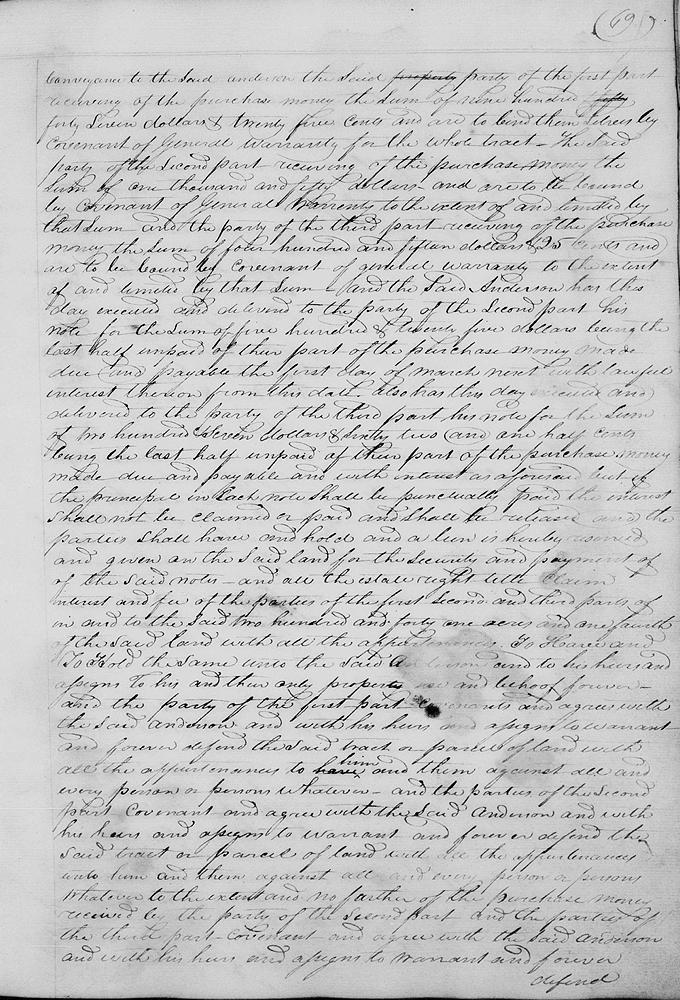 (691)
Conveyance to the Said anderson the Said property party of the first part
receiving of the purchase money the Sum of nine hundred & fifty
forty Seven dollars & twenty five Cents and are to bind them selves by
Covenant of General Warranty for the whole tract - The Said
party of the Second part receiving of the purchase money the
Sum of one thousand and fifty dollars - and are to be bound
by Covenant of General Warrenty to the extent of and limited by
that Sum - and the party of the third part receiving of the purchase
money the Sum of four hundred and fifteen dollars & 25 Cents and
are to be bound by Covenant of general warranty to the extent
of and limited by that Sum - And the Said Anderson has this
day executed and delivered to the party of the Second part his
note for the Sum of five hundred & twenty five dollars being the
last half unpaid of their part of the purchase money made
due and payable the first day of march next with lawful
interest thereon from this date. also has this day executed and
delivered to the party of the third part his note for the Sum
of two hundred & Seven dollars & Sixty two and one half Cents
being the last half unpaid of their part of the purchase money
made due and payable and with interest as aforesaid but if
the principal in Each note Shall be punctually paid the interest
Shall not be claimed or paid and Shall be released and the
parties Shall have and hold and a lien is hereby reserved
and given on the Said land for the Security and payment of
of the Said notes - and all the estate right title Claim
interest and fee of the parties of the first Second and third parts of
in and to the Said two hundred and forty one acres and one fourth
of the Said land with all the appurtenances To Have and
To Hold the Same unto the Said Anderson and to his heirs and
assigns to his and their only property use and behoof forever -
and the party of the first part Covenants and agrees with
the Said Anderson and with his heirs and assigns to warrant
and forever defend the Said tract or parcel of land with
all the appurtenances to have him and them against all and
every person or persons whatever - and the parties of the Second
part Covenant and agree with the Said Anderson and with
his heirs and assigns to warrant and forever defend the
Said tract or parcel of land with all the appurtenances
unto him and them against all and every person or persons
Whatever to the extent and no farther of the purchase money
received by the party of the Second part and the parties of
the third part Covenant and agree with the Said Anderson
and with his heirs and assigns to warrant and forever
defend